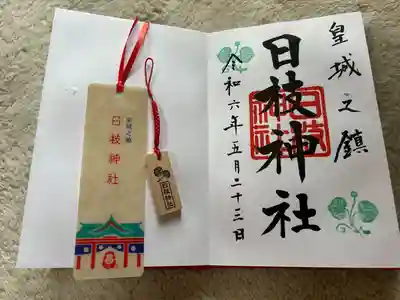 皇城之鎮
日枝神社
日枝神社
令和六年五月二十三日
皇城之鎮
日枝神社
日枝神社